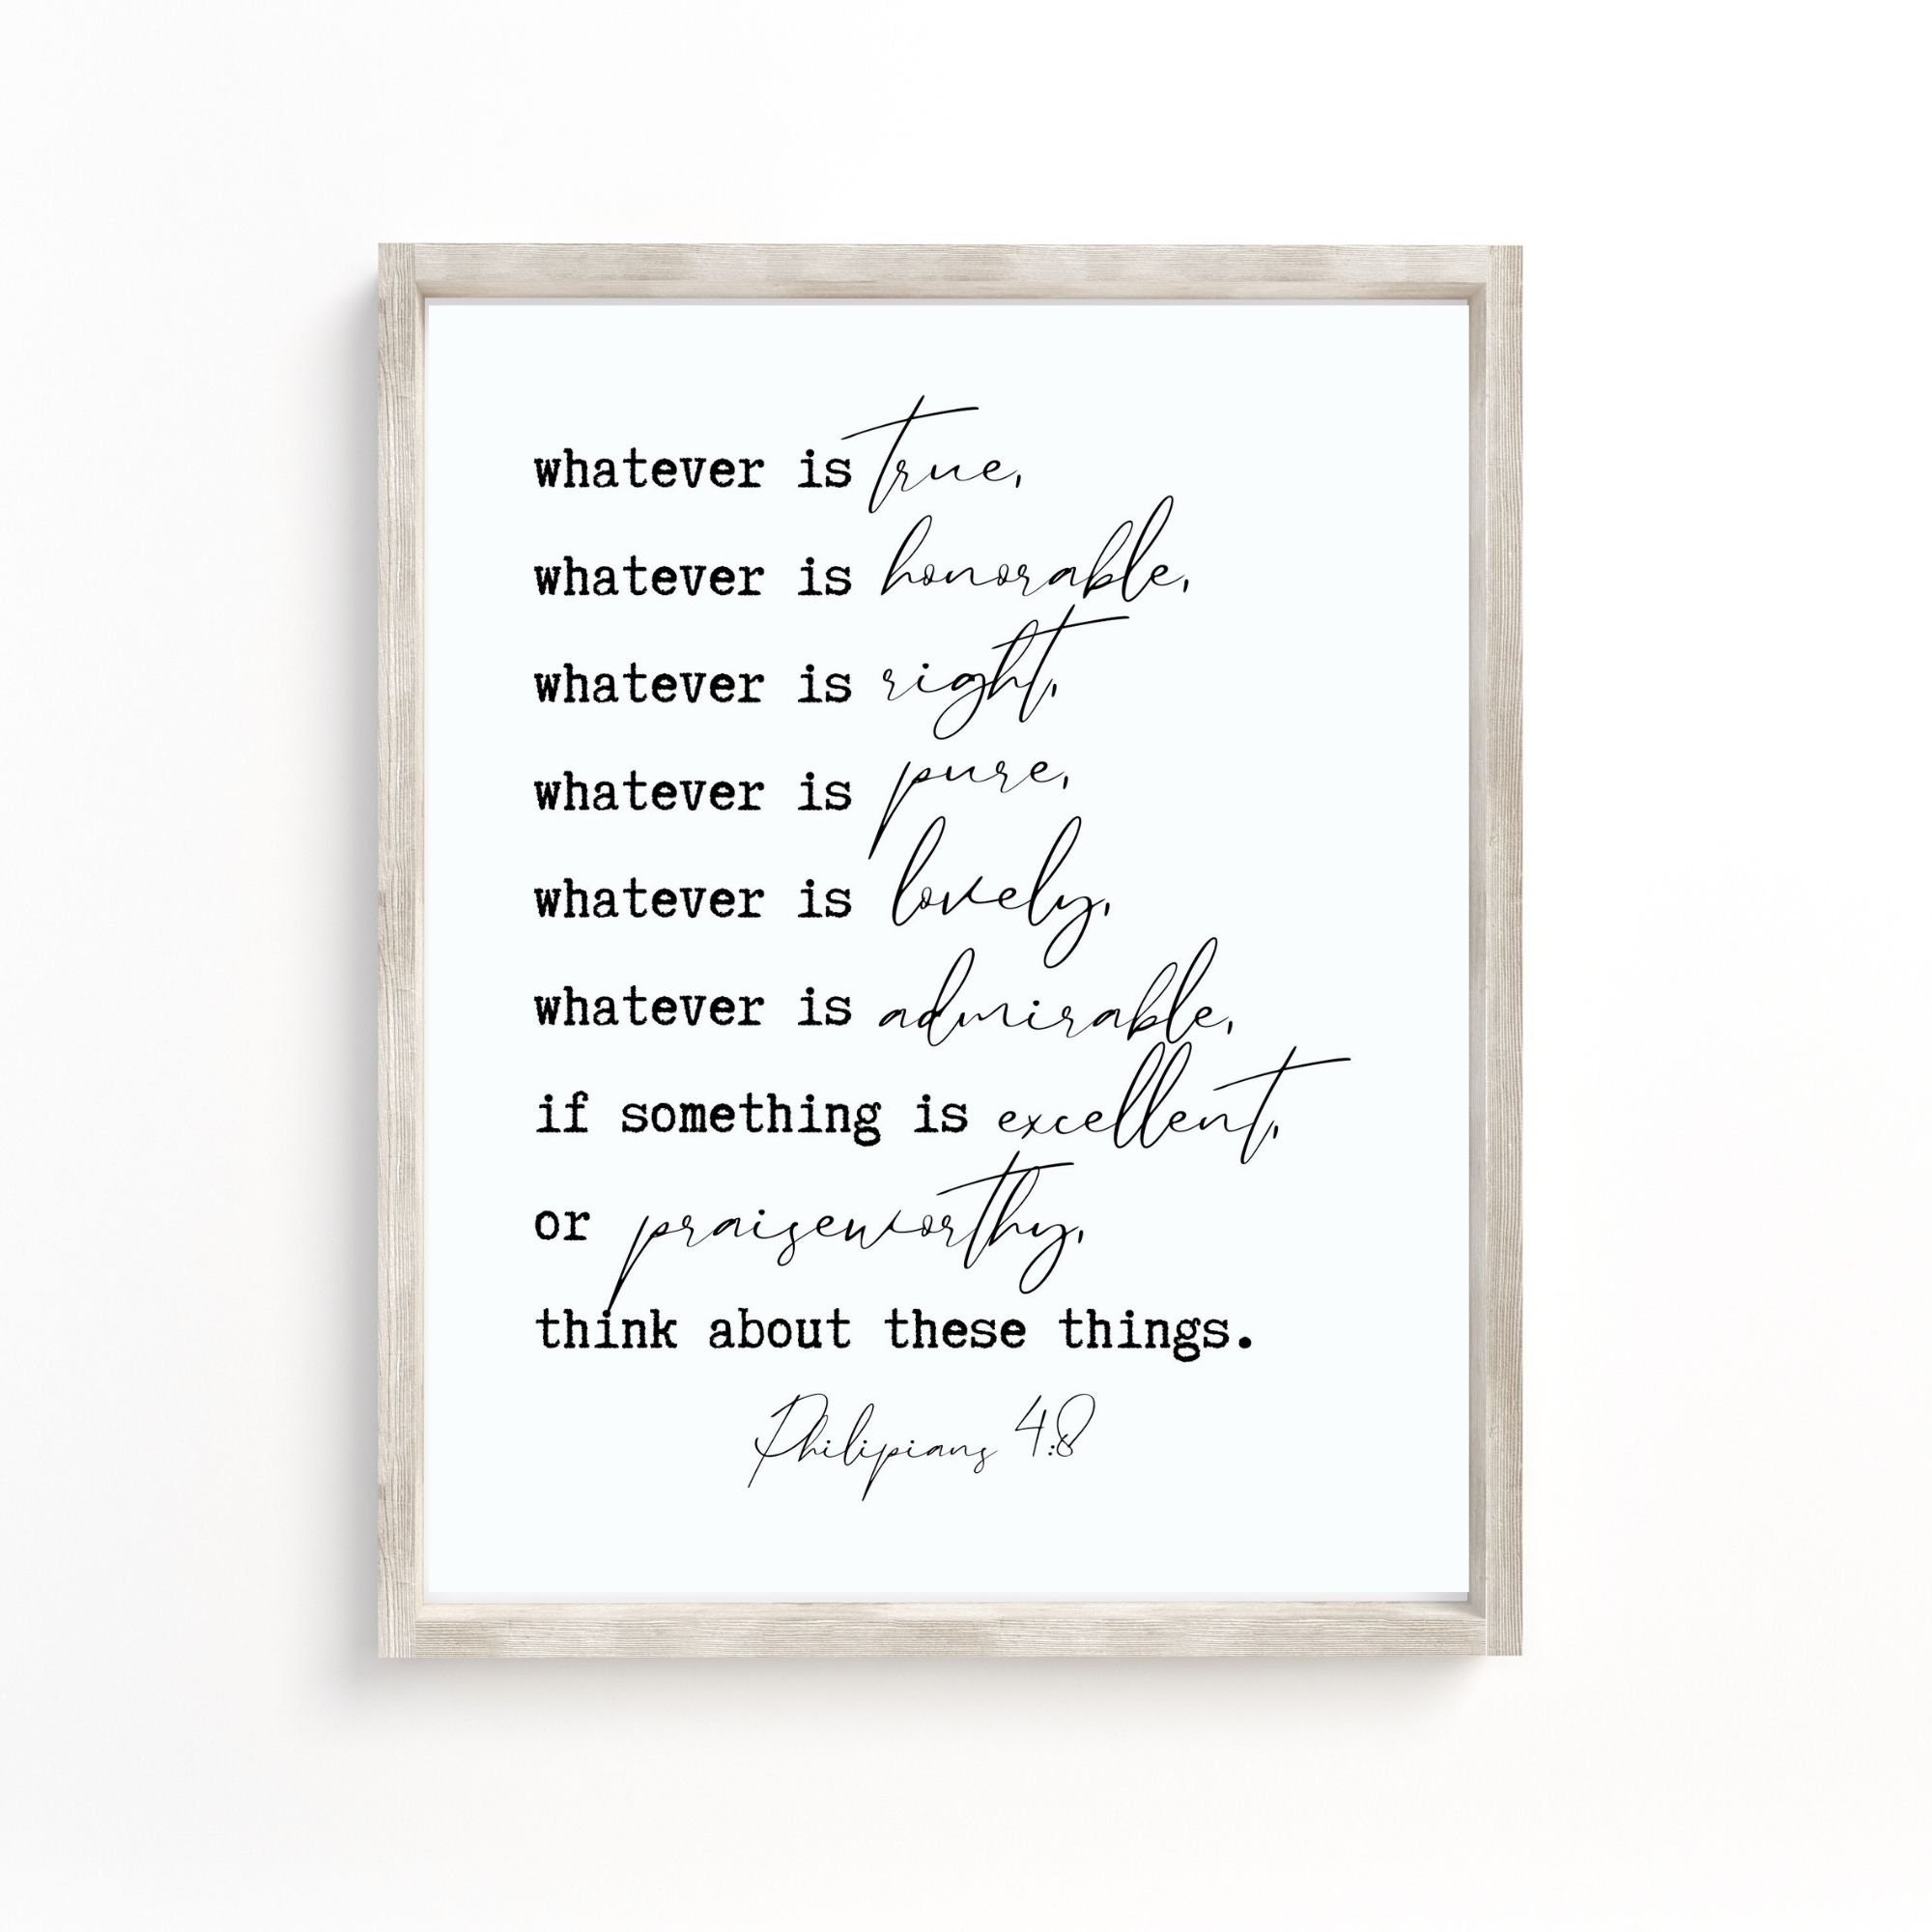 whatever is true,
whatever is honorable,
whatever is right,
whatever is pure,
whatever is lovely,
whatever is admirable,
if something is excellent,
or praiseworthy,
think about these things.
Philipians 4:8